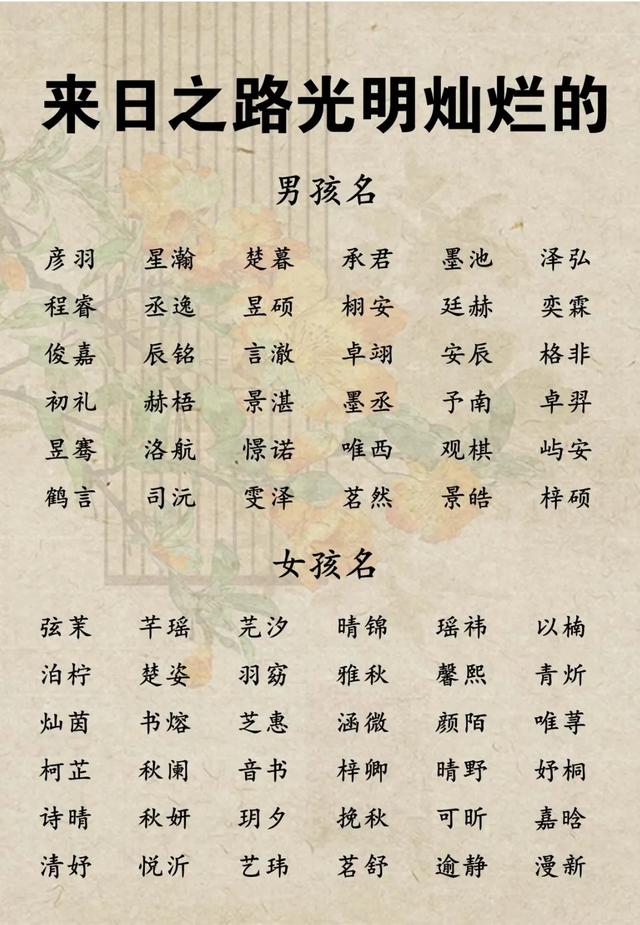 来日之路光明灿烂的
男孩名
彦羽 星瀚 楚暮 承君 墨池 泽弘
程睿 丞逸 昱硕 栩安 廷赫 奕霖
俊嘉 辰铭 言澈 卓翊 安辰 格非
初礼 赫梧 景湛 墨丞 予南 卓羿
昱骞 洛航 憬诺 唯西 观棋 屿安
鹤言 司沅 雯泽 茗然 景皓 梓硕
女孩名
弦茉 芊瑶 芫汐 晴锦 瑶祎 以楠
泊柠 楚姿 羽窈 雅秋 馨熙 青炘
灿茵 书熔 芝惠 涵微 颜陌 唯荨
柯芷 秋阑 音书 梓卿 晴野 妤桐
诗晴 秋妍 玥夕 挽秋 可昕 嘉晗
清妤 悦沂 艺玮 茗舒 逾静 漫新